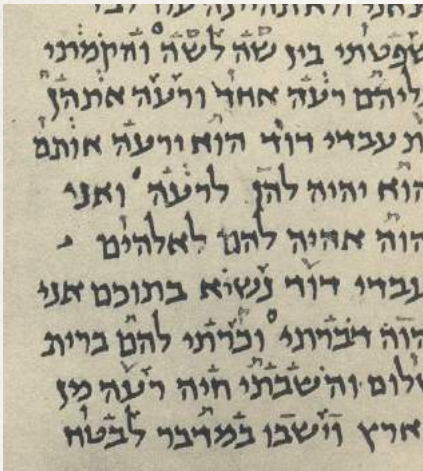 צאני ולא תהיינה עוד לבז
שפטתי בין שה לשה והקמתי
ליהם רעה אחד ורעה אתהן
ת עבדי דוד הוא ירעה אותם
הוא יהיה להן לרעה ואני
הוה אהיה להם לאלהים
עבדי דוד נשיא בתוכם אני
הוה דברתי וכרתי להם ברית
שלום והשבתי חיה רעה מן
ארץ וישבו במדבר לבטח